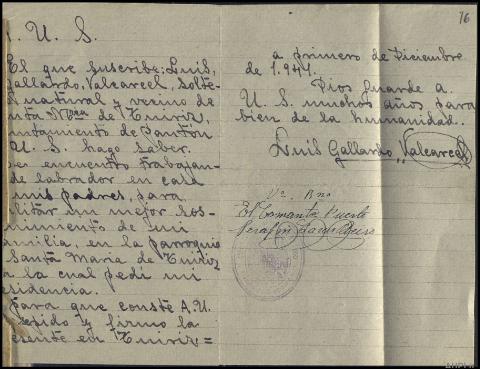 A. U. S.
El que suscribe: Luis,
Gallardo, Valcarcel, solte-
natural y vecino de
nta Mª de Tuiriz,
untamiento de Pantón
U. S. hago saber.
e encuentro trabajan-
de labrador en casa
mis padres, para
litar un mejor sos-
nimiento de mi
amilia, en la Parroquia
Santa Maria de Tuiriz
a la cual pedí mi
esidencia.
para que conste A. U.
epido y firmo la
esente en Tuiriz=
76
a primero de Diciembre
de 1.941.
Dios guarde a.
U. S. muchos años para
bien de la humanidad.
Luis Gallardo Valcarcel
Vº. Bno
El Comante Puesto
Serafin